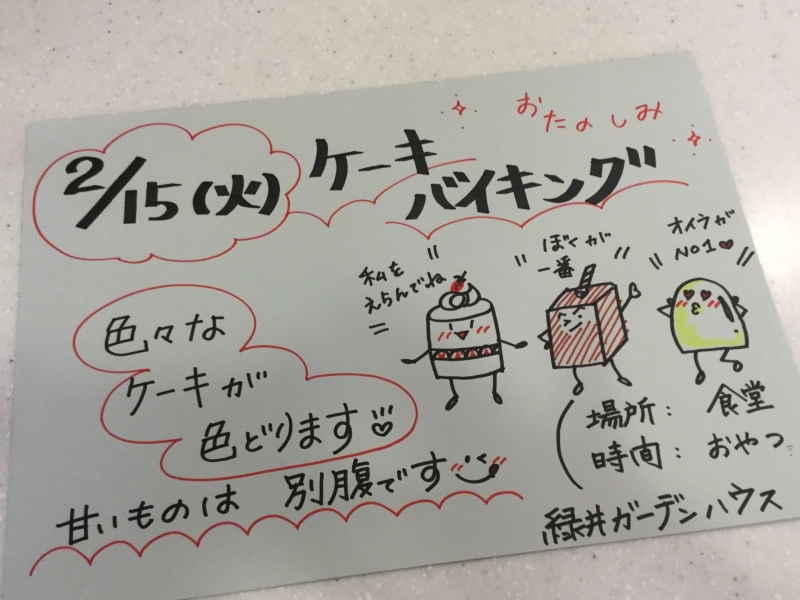 おたのしみ
2/15(火) ケーキ
バイキング
私を
えらんでね
ぼくが
一番
オイラが
NO1♥
色々な
ケーキが
色どります
甘いものは 別腹です
場所: 食堂
時間: おやつ
緑井ガーデンハウス